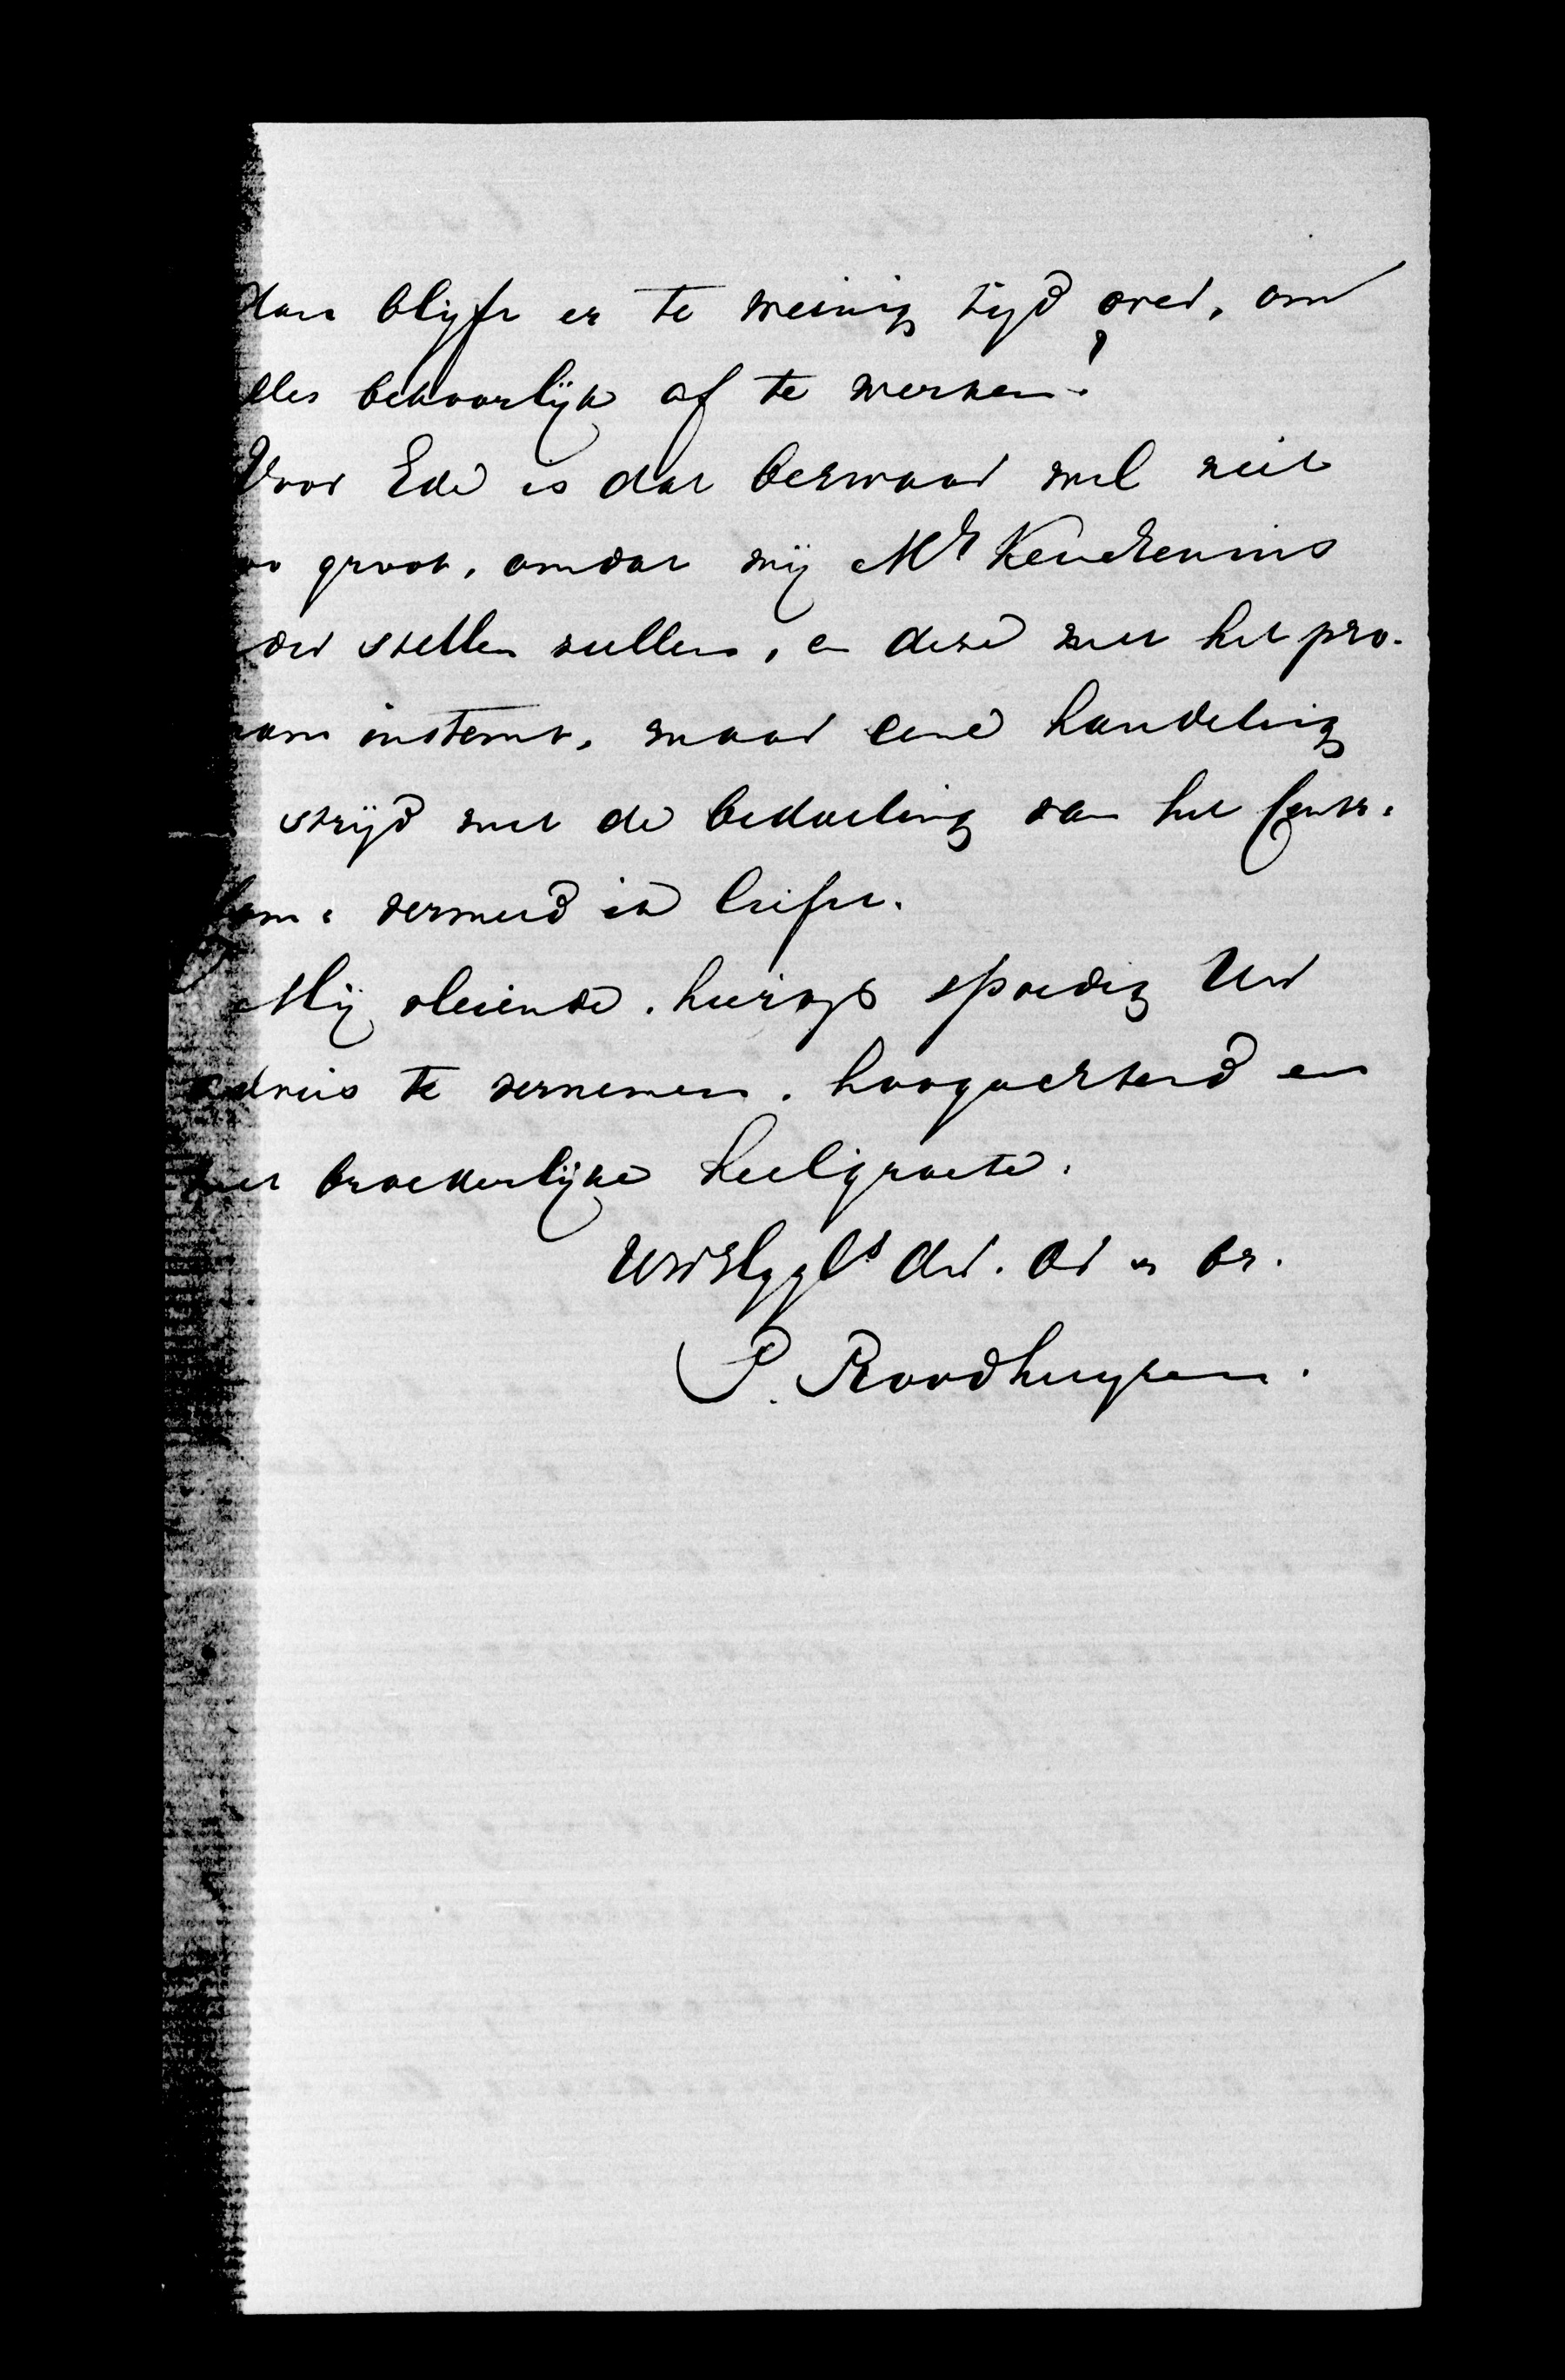 dan blijft er te weinig tijd over, om
lles behoorlijk af te werken.
Voor Ede is dat bezwaar wel niet
oo groot, omdat wij Mr Keuchenius
der stellen zullen, en deze met het pro-
am instemt, maar eene handeling
strijd met de bedoeling van het Centr.
om. vermeed ik liefst.
Mij vleiende, hierop spoedig Uw
advies te vernemen, hoogachtend en
met broederlijke heilgroete,
UwHggbs dw. dr en br.
P. Roodhuyzen.